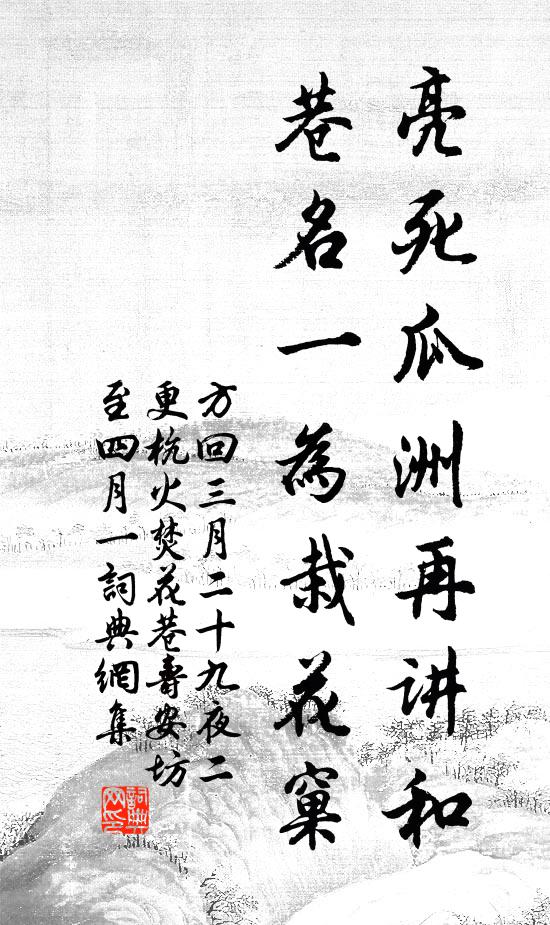 亮死瓜洲再讲和
巷名一為栽花窠
方回三月二十九夜二
更杭火焚花巷壽安坊
至四月一詞典網集